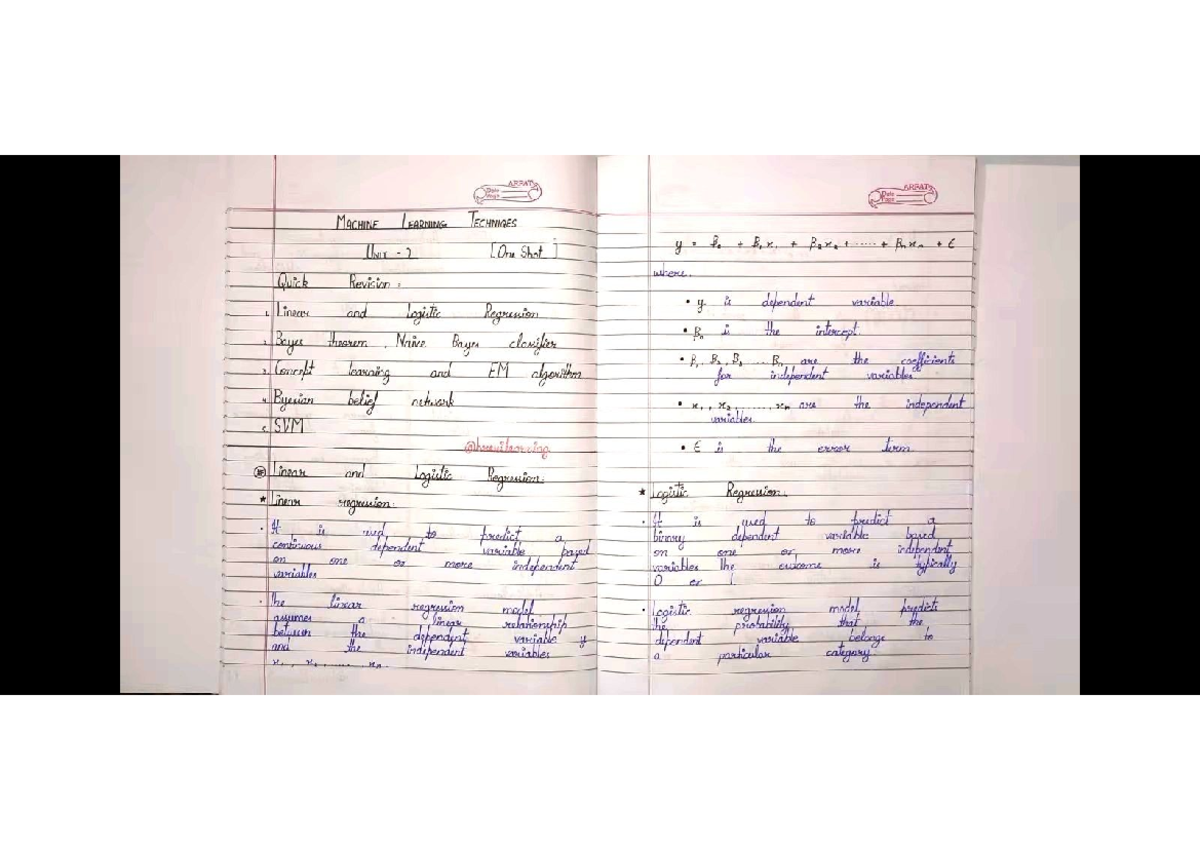 MACHINE LEARNING TECHNIQES
UNIT - 2 [One Shot]
Quick Revision :
1. Linear and Logistic Regression
2. Bayes theorem , Naive Bayes classifier
3. Concept learning and EM algorithm
4. Byesian belief network
5. SVM
Linear and Logistic Regression:
* Linear regression:
• It is used to predict a
continuous dependent variable based
on one or more independent
variables
• The linear regression model
assumes a linear relationship
between the dependent variable y
and the independent variables
x₁, x₂, ...... xₙ
Date
Page
y = β₀ + β₁x₁ + β₂x₂ + ...... + βₙxₙ + ε
where,
• y is dependent variable
• β₀ is the intercept.
• β₁, β₂, β₃ .... βₙ are the coefficients
for independent variables
• x₁, x₂ ......, xₙ are the independent
variables.
• ε is the error term.
* Logistic Regression:
• It is used to predict a
binary dependent variable based
on one or more independent
variables the outcome is typically
0 or 1.
• Logistic regression model predicts
the probability that the
dependent variable belongs to
a particular category.